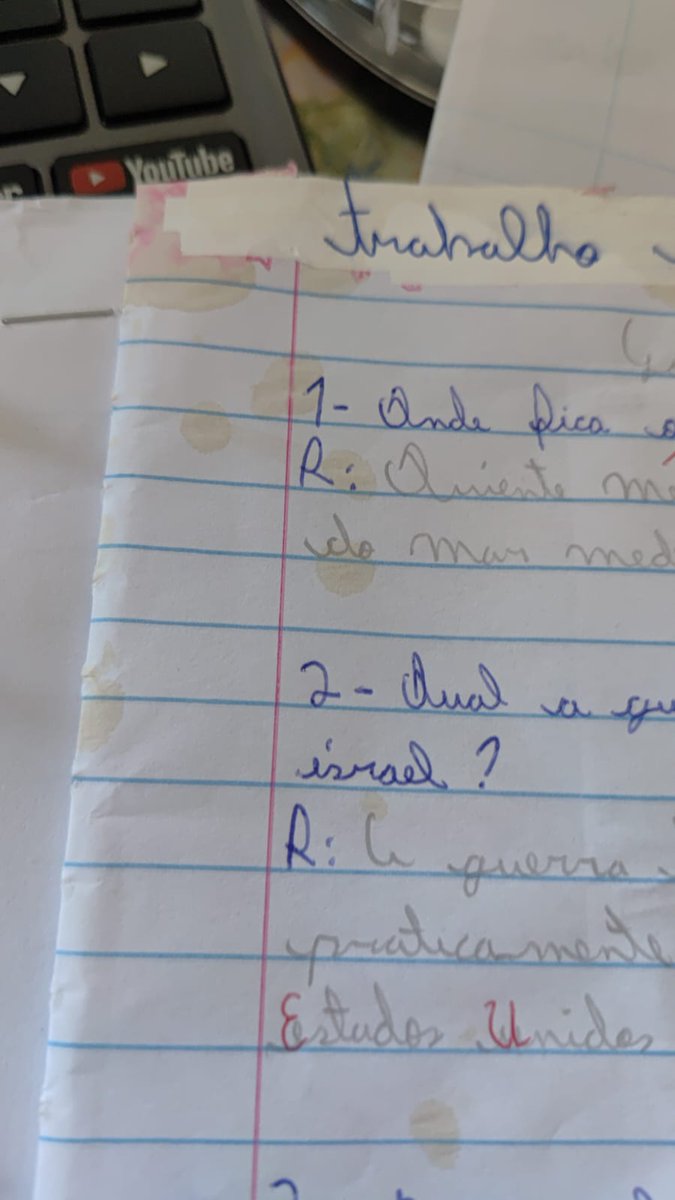 YouTube
trabalho
1- Onde fica
R: Oriente
do mar med
2- Qual a gu
israel ?
R: A guerra
praticamente
Estados Unidos